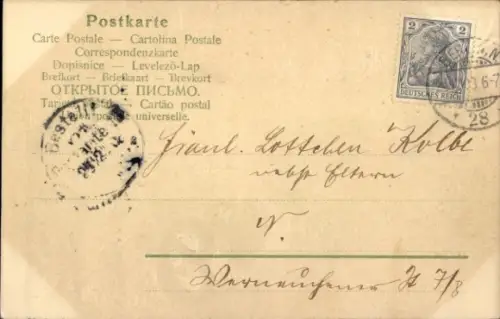 Postkarte
Carte Postale — Cartolina Postale
Correspondenzkarte
Dopisnice — Levelező-Lap
Brefkort — Briefkaart — Brevkort
ОТКРЫТОЕ ПИСЬМО.
Cartão postal
postale universelle.
2 2
DEUTSCHES REICH
28
Bestellt
Fräul. Lottchen Kolbe
nebst Eltern
N.
Werneuchener St 7/8